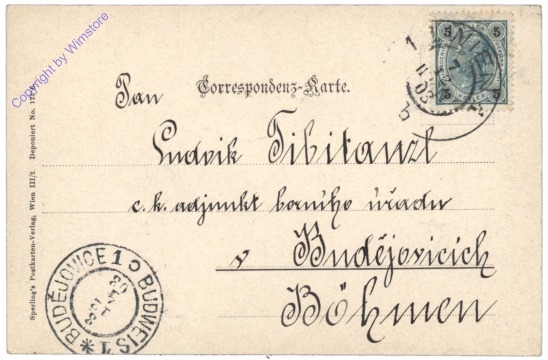 Copyright by Wimstore
Correspondenz-Karte.
Pan
Ludvik Tibitanzl
c. k. adjunkt berního úřadu
v Budějovicích
Böhmen
5 5
1 WIEN
03
b
BUDĚJOVICE 1 BUDWEIS 1 *
03
Sperling's Postkarten-Verlag, Wien III/2. Deponiert No.